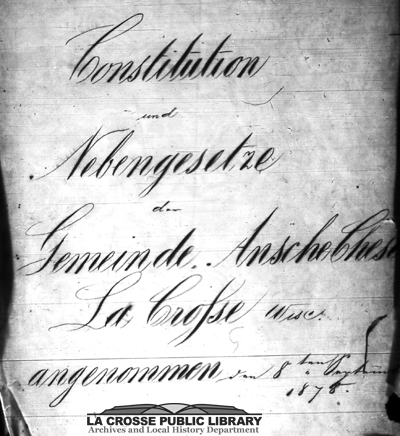 Constitution
und
Nebengesetze
der
Gemeinde. Ansche Ches
La Crosse Wisc.
angenommen den 8ten September
1878.
LA CROSSE PUBLIC LIBRARY
Archives and Local History Department